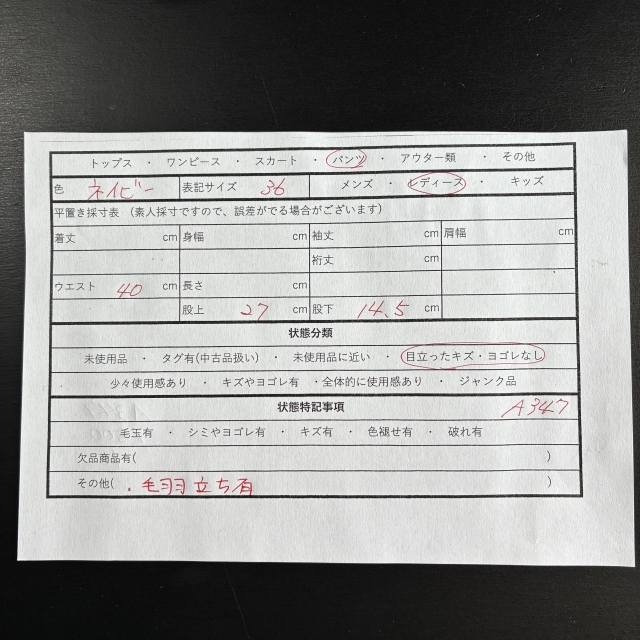 トップス ・ ワンピース ・ スカート ・ パンツ ・ アウター類 ・ その他
色 ネイビー 表記サイズ 36 メンズ ・ レディース ・ キッズ
平置き採寸表 (素人採寸ですので、誤差がでる場合がございます)
着丈 cm 身幅 cm 袖丈 cm 肩幅 cm
裄丈 cm
ウエスト 40 cm 長さ cm
股上 27 cm 股下 14.5 cm
状態分類
未使用品 ・ タグ有(中古品扱い) ・ 未使用品に近い ・ 目立ったキズ・ヨゴレなし
少々使用感あり ・ キズやヨゴレ有 ・全体的に使用感あり ・ ジャンク品
状態特記事項 A347
毛玉有 ・ シミやヨゴレ有 ・ キズ有 ・ 色褪せ有 ・ 破れ有
欠品商品有( )
その他( ・毛羽立ち有 )